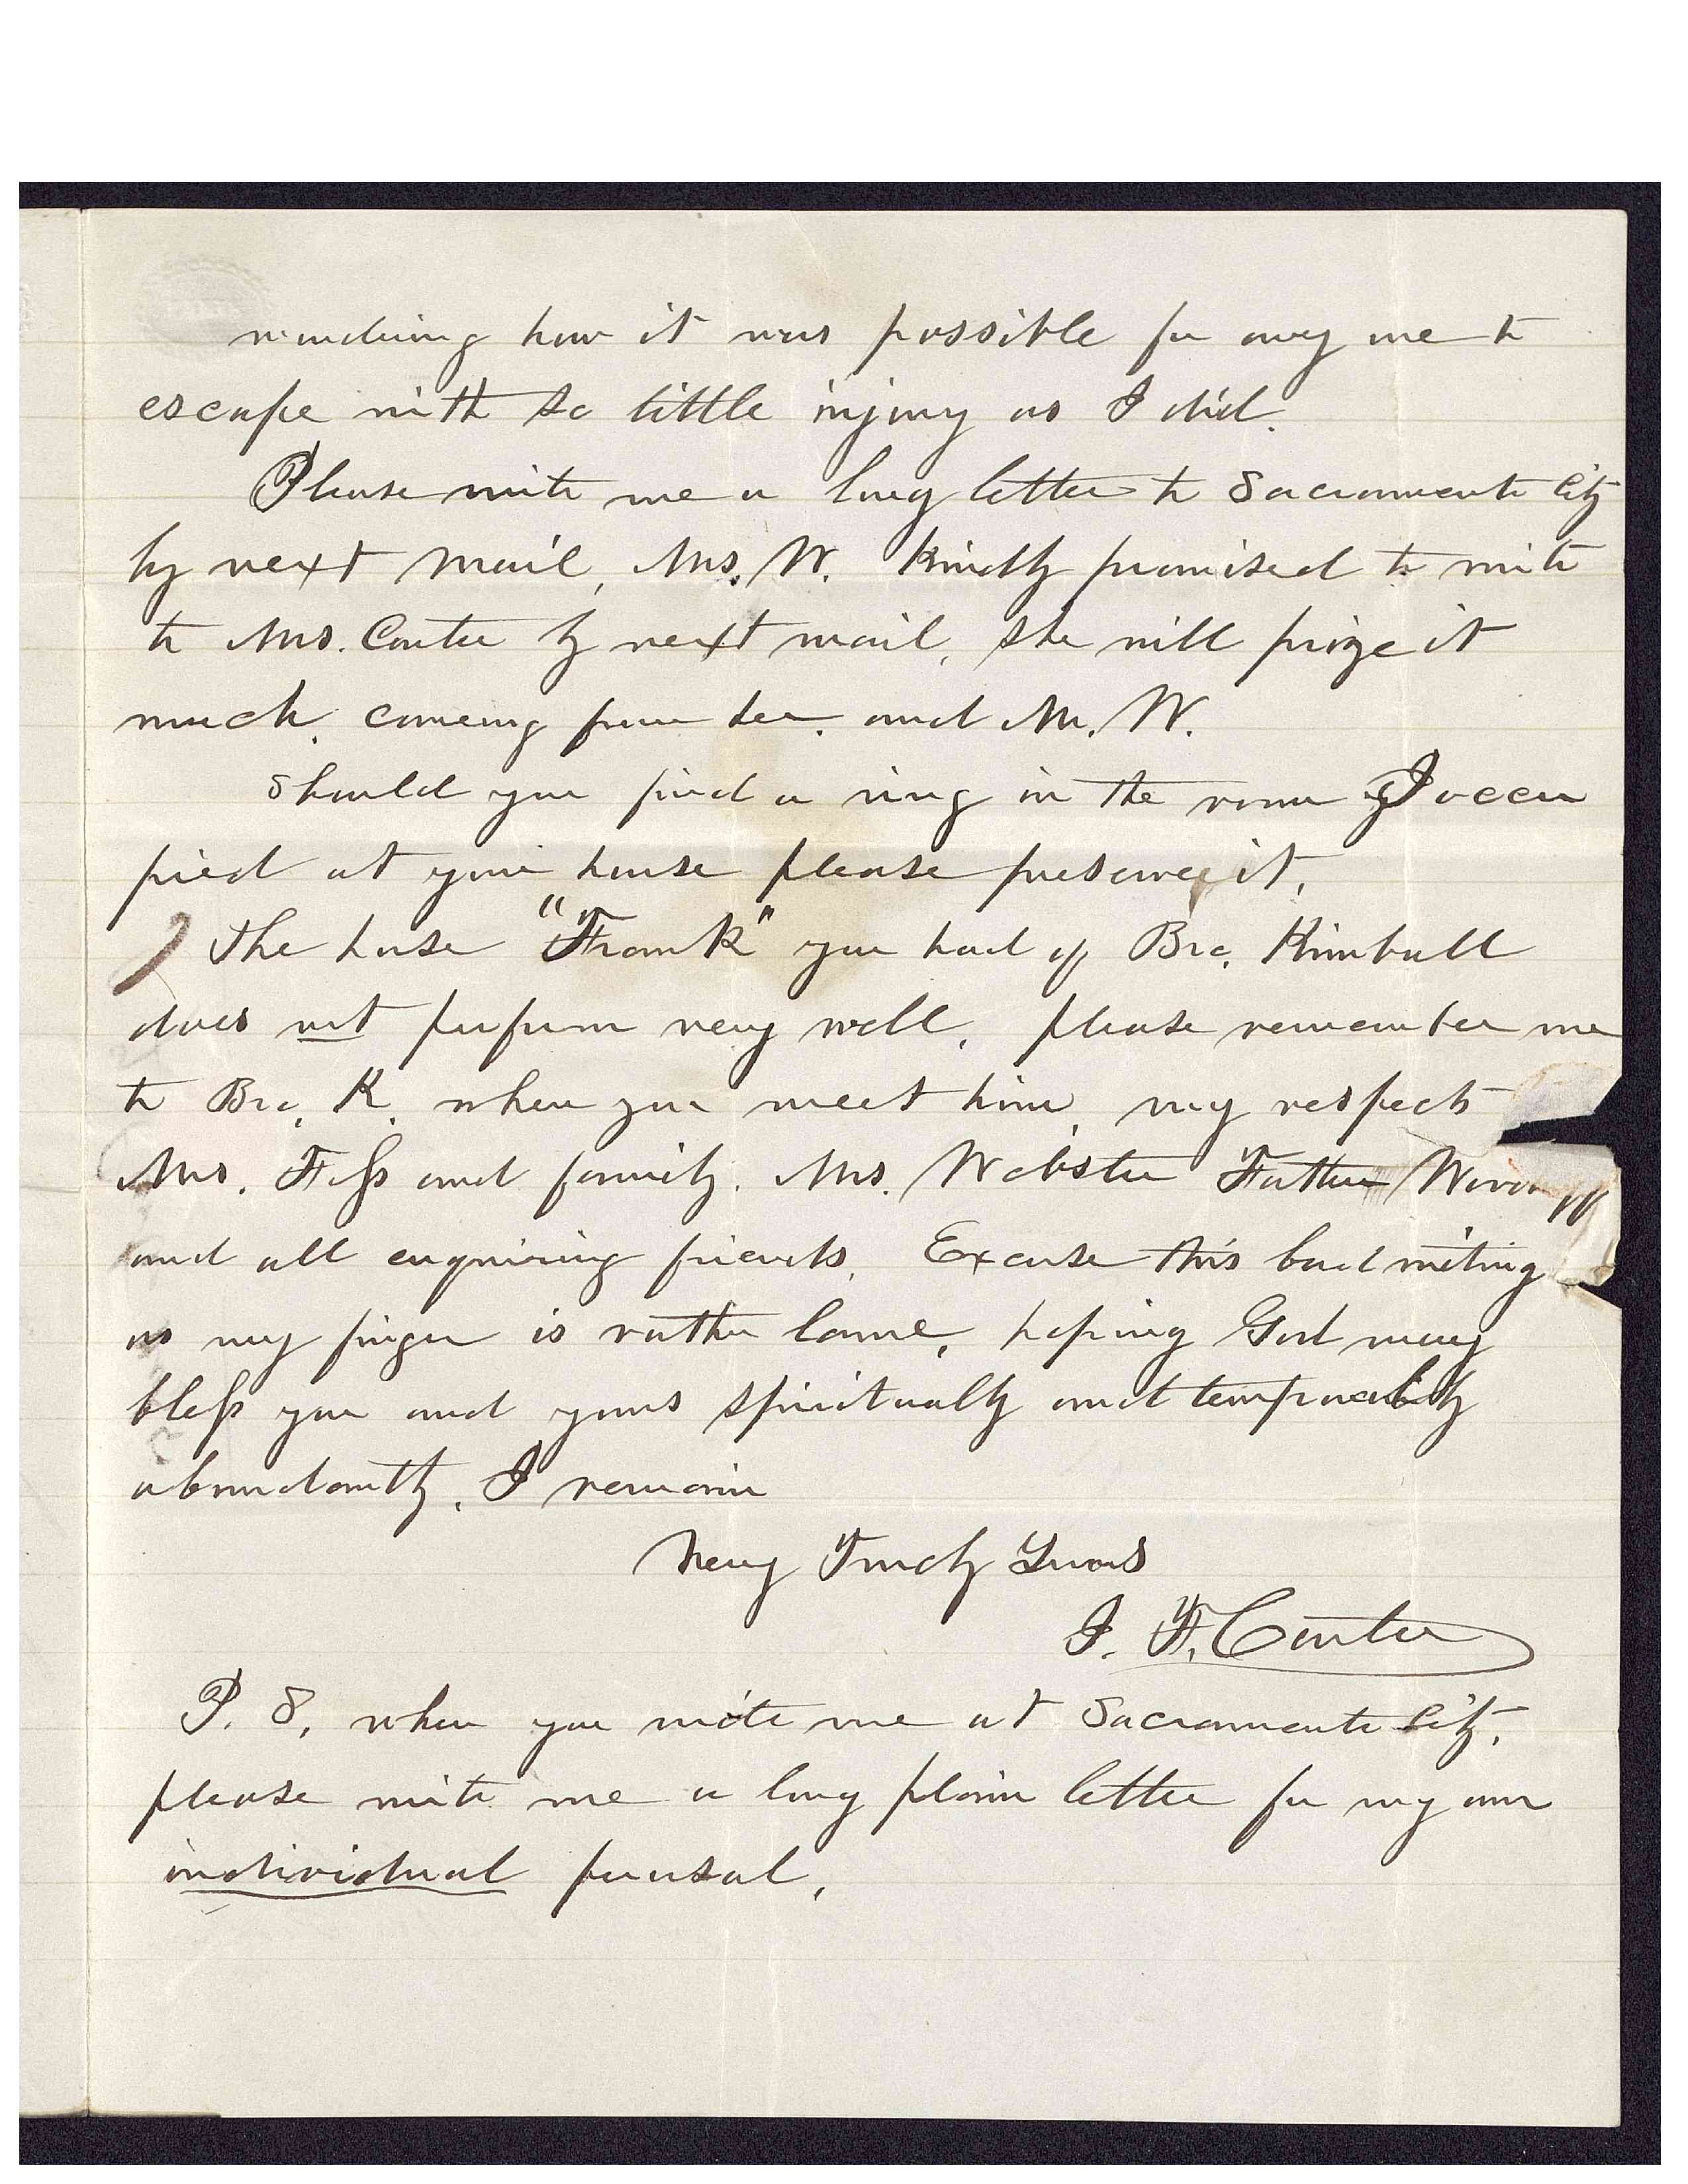 wondering how it was possible for any one to
escape with so little injury as I did.
Please write me a long letter to Sacramento City
by next mail, Mrs. W. kindly promised to write
to Mrs. Carter by next mail, she will prize it
much, comeing from her, and Mr. W.
Should you find a ring in the room I occu
pied at your house please preserve it,
The horse "Frank" you had of Bro. Kimball
does not perform very well, please remember me
to Bro. K. when you meet him, my respects
Mrs. Foss and family. Mrs. Webster Father
and all enquiring friends, Excuse this bad writing
as my finger is rather lame, hoping God may
bless you and yours spiritually and temporally
abundantly, I remain
Very Truly Yours
J. F. Carter
P. S, when you write me at Sacramento City,
please write me a long plain letter for my own
individual perusal,